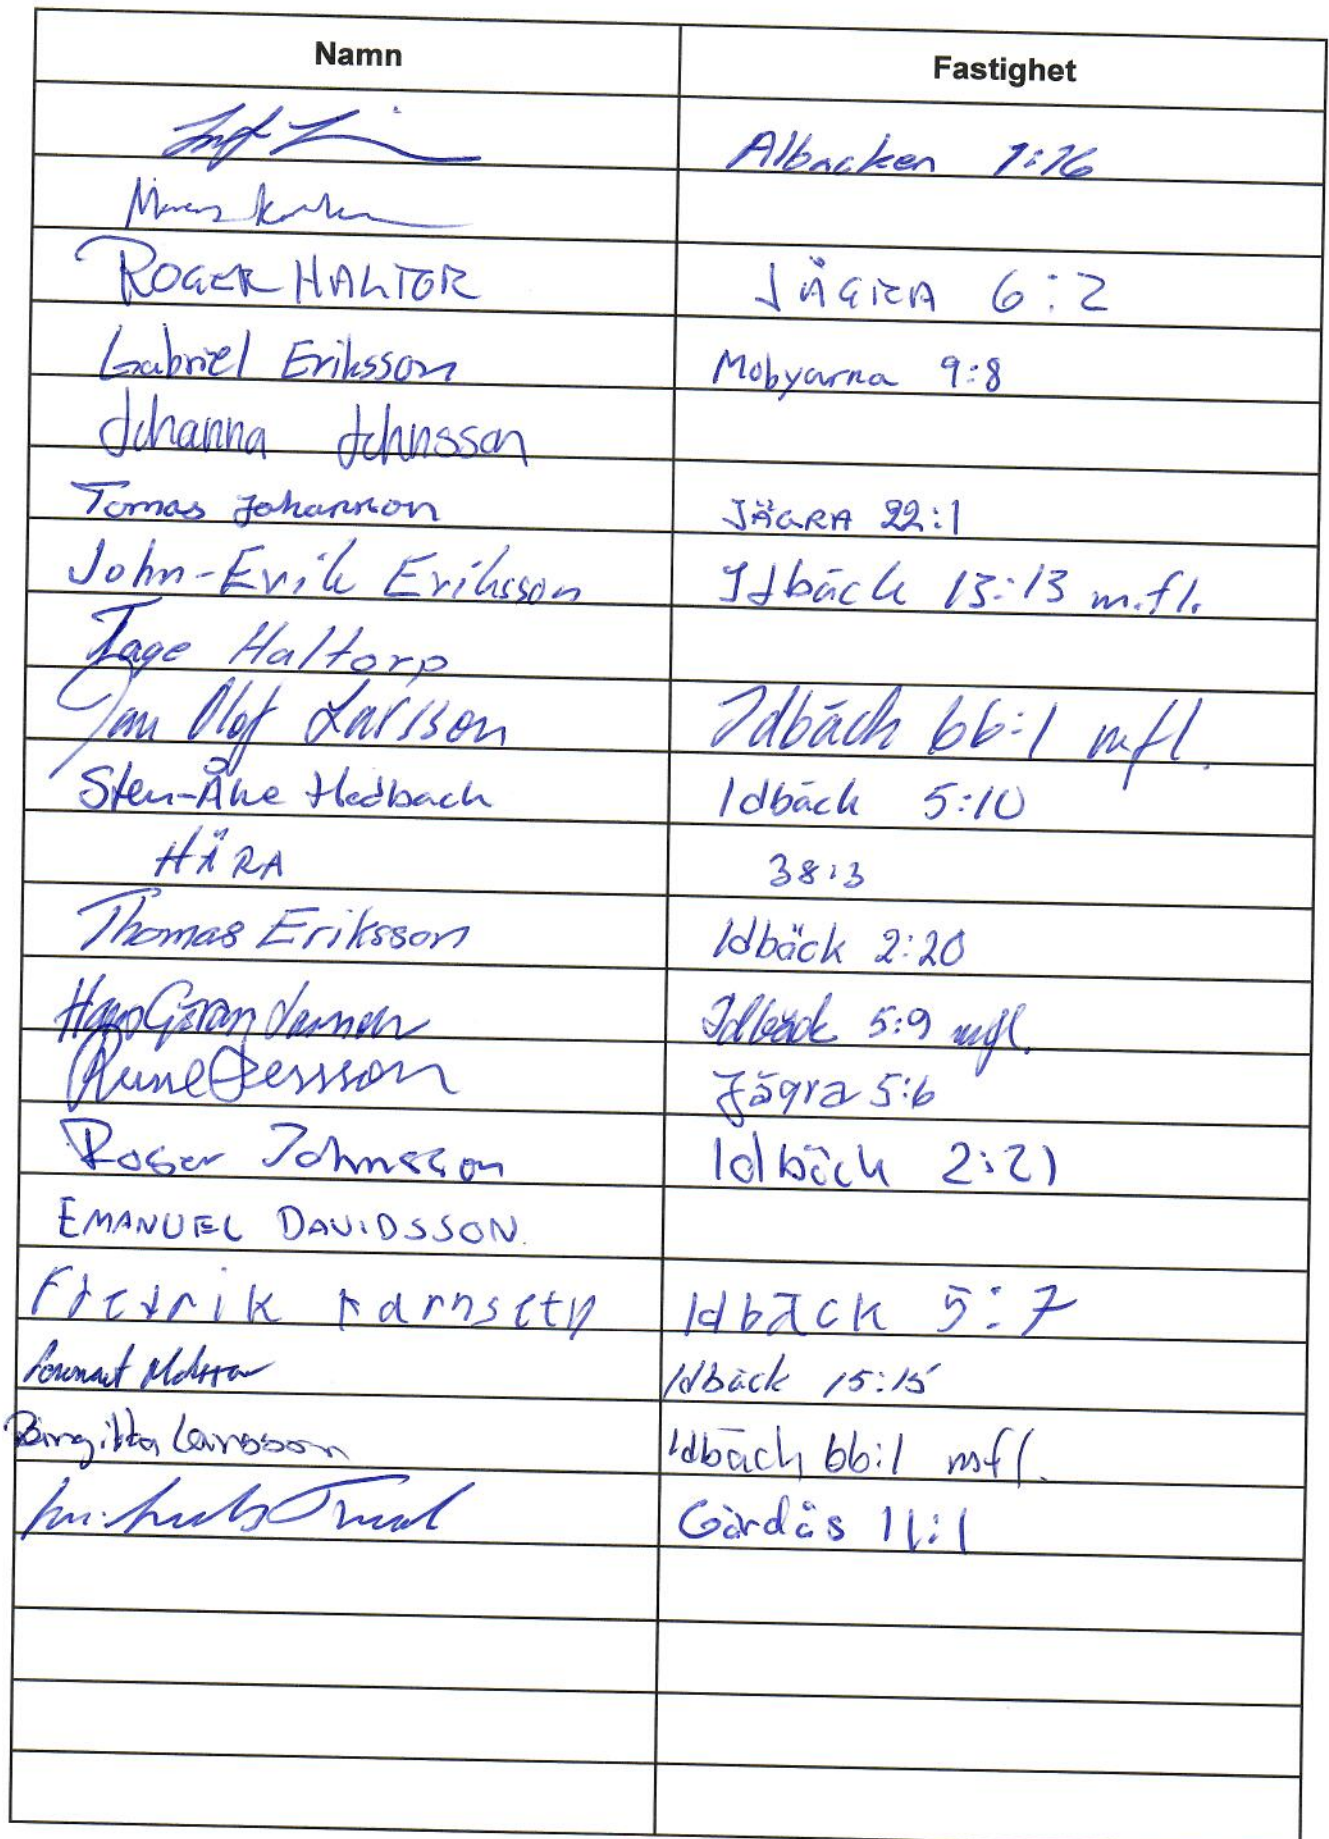 Namn Fastighet
Albacken 1:16
ROGER HALTOR JÄGRA 6:2
Gabriel Eriksson Mobyarna 9:8
Johanna Johnsson
Tomas Johansson JÄGRA 22:1
John-Erik Eriksson Idbäck 13:13 m.fl.
Tage Haltorp
Jan Olof Larsson Idbäck 66:1 mfl.
Sten-Åke Hedback Idbäck 5:10
HÄRA 38:3
Thomas Eriksson Idbäck 2:20
Hans Göran Idbäck 5:9 mfl.
Rune Persson Jägra 5:6
Roger Johnsson Idbäck 2:21
EMANUEL DAVIDSSON.
Fredrik Idbäck 5:7
Idbäck 15:15
Birgitta Larsson Idbäck 66:1 mfl.
Gärdås 11:1